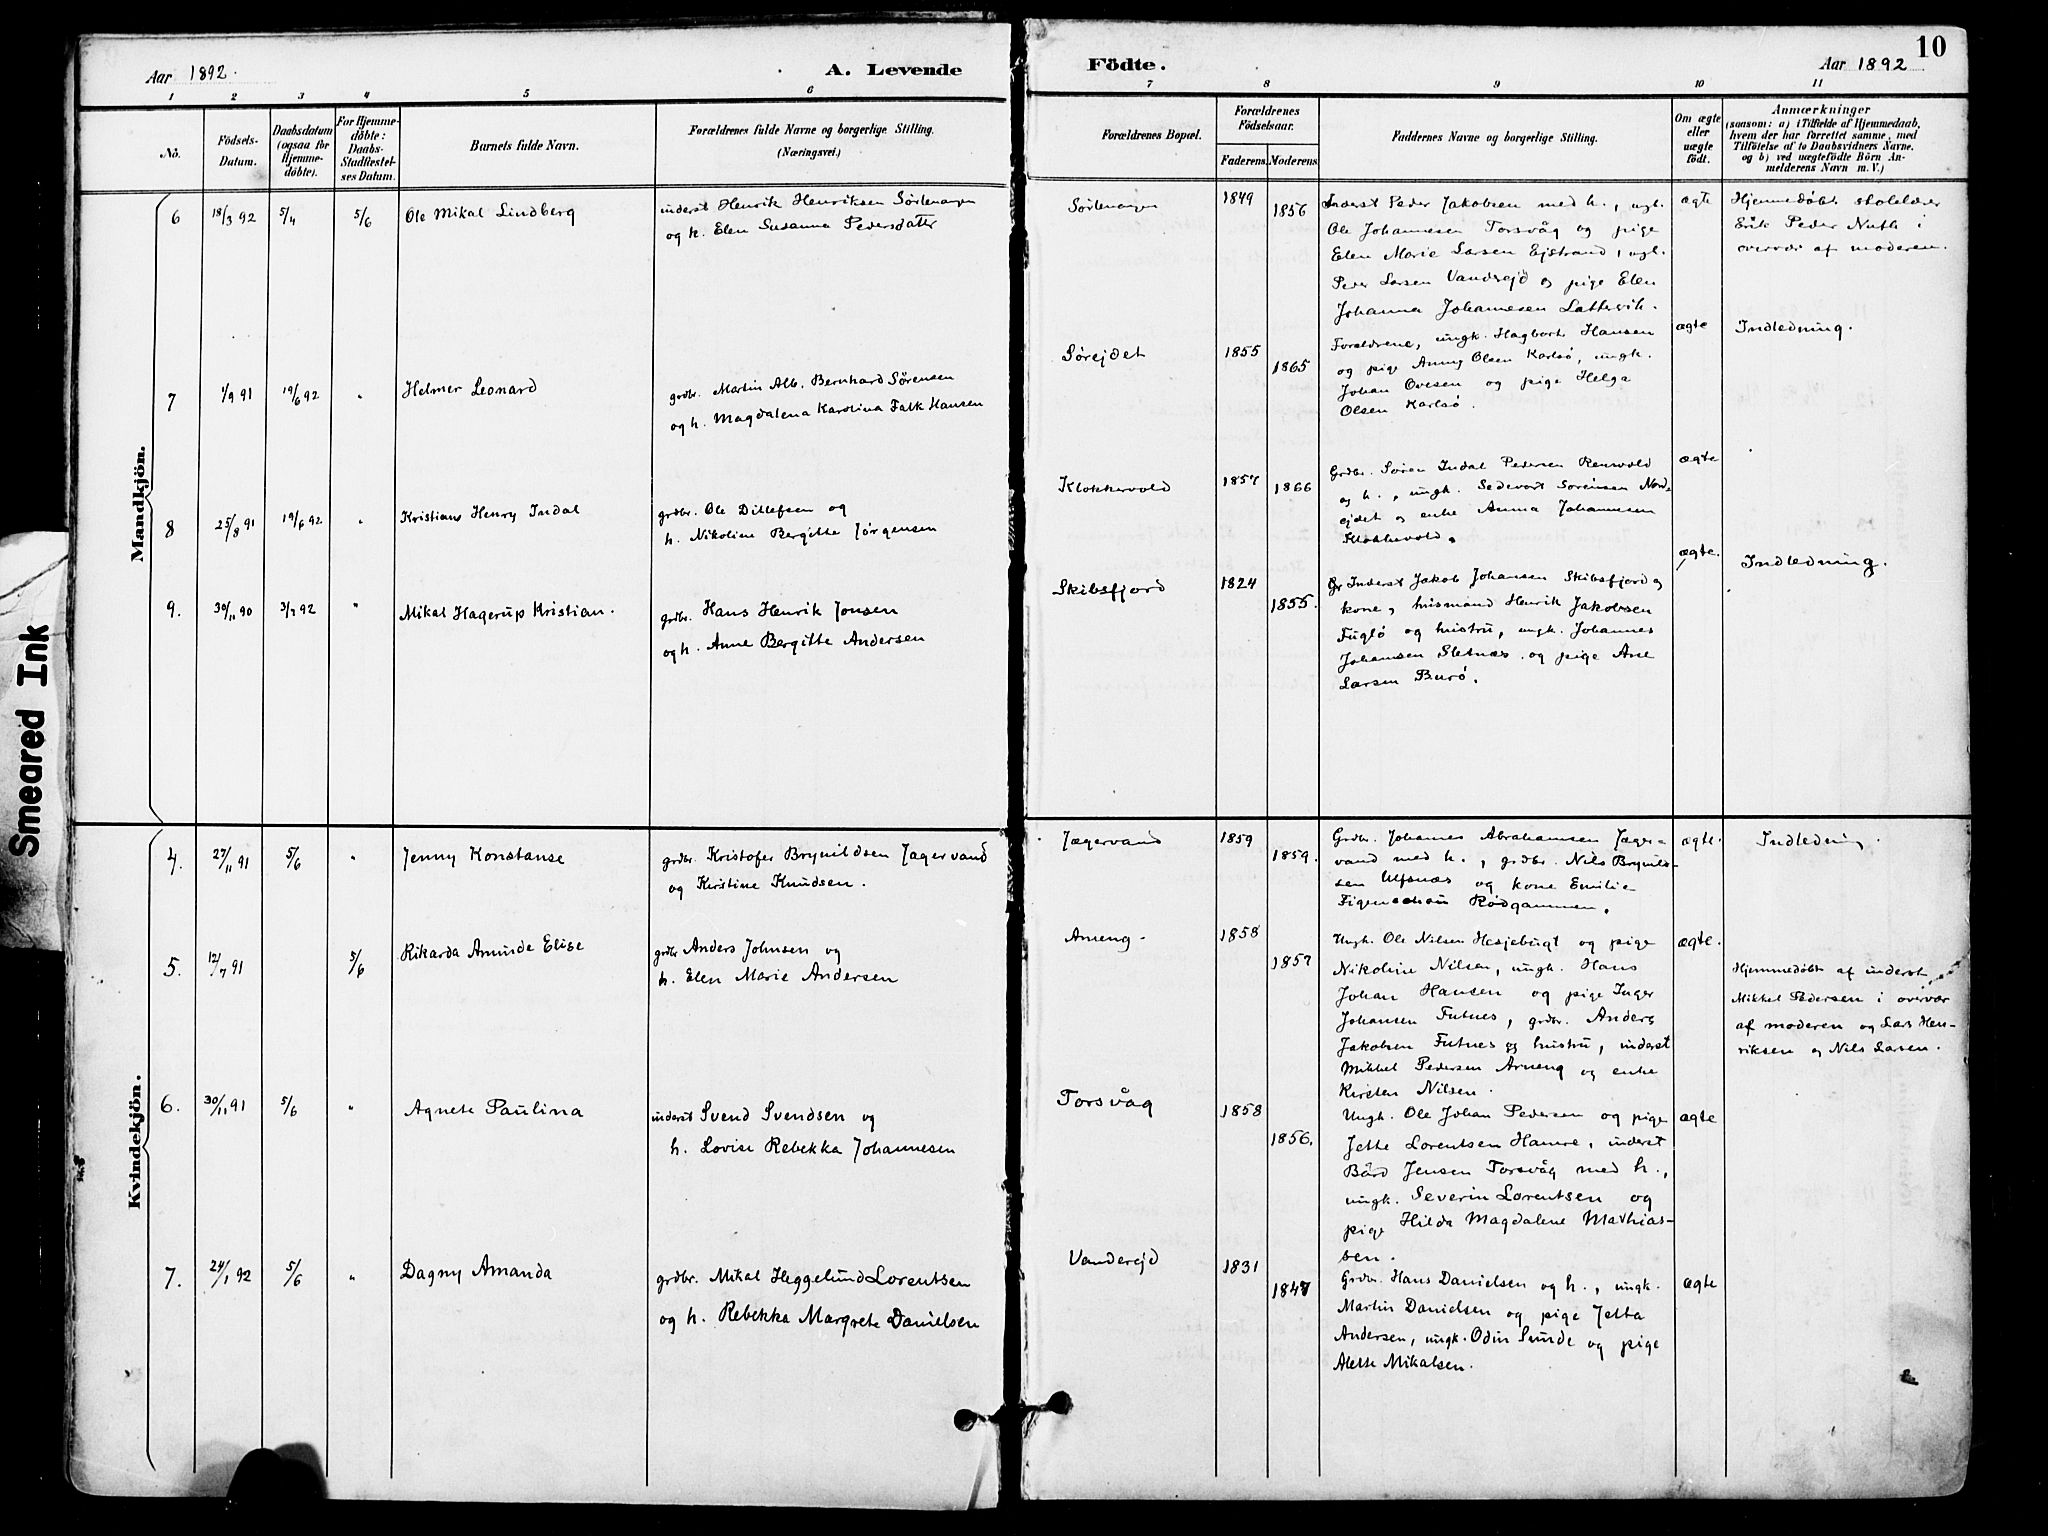 Aar 1892.
A. Levende
Födte.
Aar 1892
10
1 2 3 4 5 6 7 8 9 10 11
No.
Födsels-
Datum.
Daabsdatum
(ogsaa for
Hjemme-
døbte).
For Hjemme-
døbte:
Daabs-
Stadfæstel-
ses Datum.
Barnets fulde Navn.
Forældrenes fulde Navne og borgerlige Stilling.
(Næringsvei.)
Forældrenes Bopæl.
Forældrenes
Födselsaar.
Faderens. Moderens.
Faddernes Navne og borgerlige Stilling.
Om ægte
eller
uægte
födt.
Anmærkninger
(saasom: a) i Tilfælde af Hjemmedaab,
hvem der har forrettet samme, med
Tilföielse af to Daabsvidners Navne.
og b) ved uægtefödte Börn An-
melderens Navn m. V.)
Mandkjön.
6 18/3 92 5/4 5/6 Ole Mikal Lindberg
inderst Henrik Henriksen Sörlenangen
og h. Elen Susanna Pedersdatter
Sørlenangen 1849 1856
Inderst Peder Jakobsen med h., ugl.
Ole Johannesen Torsvåg og pige
Elen Marie Larsen Ejstrand, ugl.
Peder Larsen Vandrejd og pige Elen
Johanna Johannesen Lattervik.
ægte
Hjemmedøbt skolelærer
Erik Peder Nuth i
overvær af moderen.
7 4/9 91 19/6 92 " Helmer Leonard
grdbr. Martin Alb. Bernhard Sørensen
og h. Magdalena Karolina Falk Hansen
Sørejdet 1855 1865
Forældrene, ungk. Hagbart Hansen
og pige Anny Olsen Karlsø, ungk.
Johan Ovesen og pige Helga
Olsen Karlsø.
ægte
Indledning.
8 25/8 91 19/6 92 " Kristians Henry Indal
grdbr. Ole Ditlefsen og
h. Nikoline Bergitte Jørgensen
Klokkervold 1857 1866
Grdbr. Søren Indal Pedersen Renvold
og h., ungk. Sedevart Sørensen Nord-
ejdet og enke Anna Johannesen
Klokkervold.
ægte
9. 30/11 90 3/7 92 " Mikal Hagerup Kristian.
grdbr. Hans Henrik Jonsen
og h. Anne Bergitte Andersen
Skibsfjord 1824 1855.
Inderst Jakob Johansen Skibsfjord og
kone, husmand Henrik Jakobsen
Fuglø og hustru, ungk. Johannes
Johansen Sletnæs. og pige Ane
Larsen Burø.
ægte.
Indledning.
Kvindekjön.
4. 27/11 91 5/6 " Jenny Konstanse
grdbr. Kristofer Brynildsen Jagervand
og Kirstine Knudsen.
Jægervand 1859 1859.
Grdbr. Johannes Abrahamsen Jæger-
vand med h., grdbr. Nils Brynild-
sen Ulfsnæs og kone Emilie
Figenschou Rødgammen.
ægte.
Indledning.
5. 12/7 91 5/6 Rikarda Amunde Elise
grdbr Anders Johnsen og
h. Elen Marie Andersen
Arneng. 1858 1857
Ungk. Ole Nilsen Hesjebugt og pige
Nikoline Nilsen, ungk. Hans
Johan Hansen og pige Inger
Johansen Futnes, grdbr. Anders
Jakobsen Futnes og hustru, inderst
Mikkel Pedersen Arneng og enke
Kirsten Nilsen.
ægte.
Hjemmedøbt af inderst
Mikkel Pedersen i overvær
af moderen og Lars Hen-
riksen og Nils Larsen.
6. 30/11 91 5/6 " Agnete Paulina
inderst Svend Svendsen og
h. Lovise Rebekka Johannesen
Torsvåg 1858 1856.
Ungk. Ole Johan Pedersen og pige
Jette Lorentsen Hamre, inderst
Bård Jensen Torsvåg med h.,
ungk. Severin Lorentsen og
pige Hilda Magdalene Mathias-
sen.
ægte
7. 24/1 92 5/6 " Dagny Amanda
grdbr. Mikal Heggelund Lorentsen
og h. Rebekka Margrete Danielsen
Vanderejd 1831 1847
Grdbr. Hans Danielsen og h., ungk.
Martin Danielsen og pige Jetta
Andersen, ungk. Odin Sunde og pige
Alette Mikalsen.
ægte
Smeared Ink